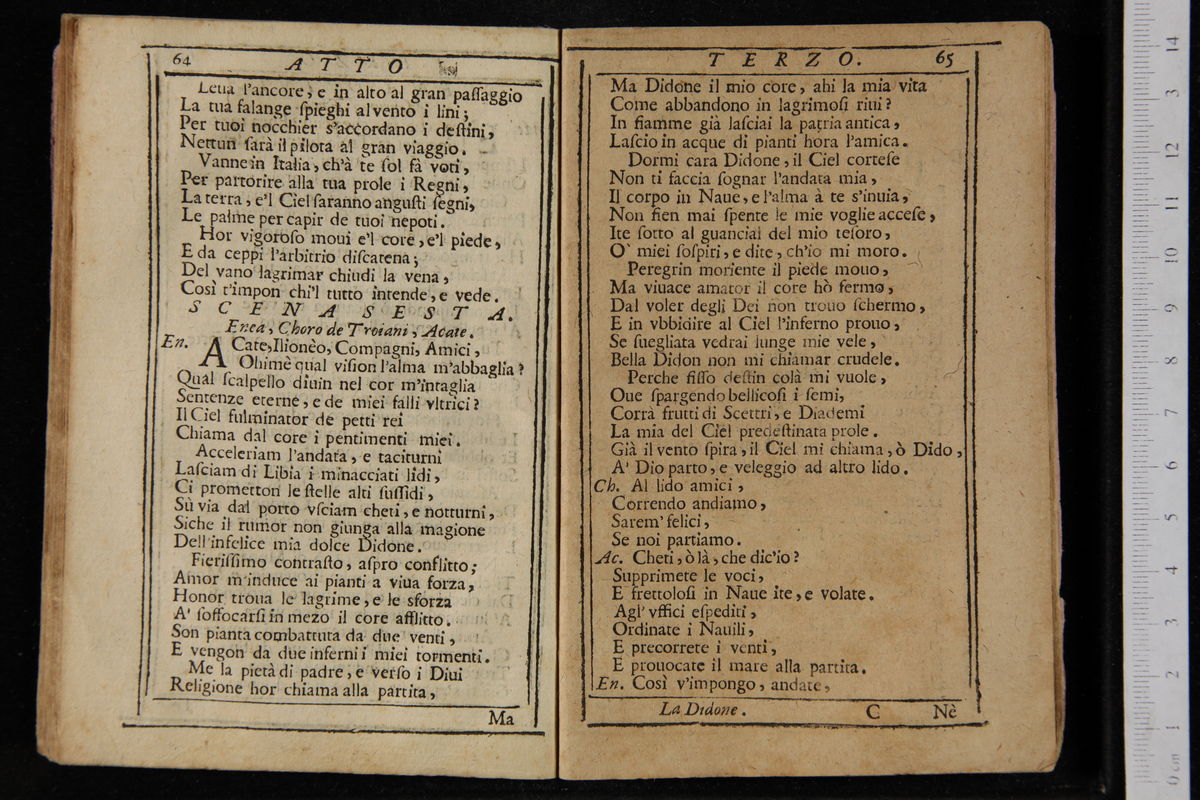 64 ATTO
Leua l'ancore, e in alto al gran paſſaggio
La tua falange ſpieghi al vento i lini;
Per tuoi nocchier s'accordano i deſtini,
Nettun ſarà il pilota al gran viaggio.
Vanne in Italia, ch'à te ſol fà voti,
Per partorire alla tua prole i Regni,
La terra, e'l Ciel ſaranno anguſti ſegni,
Le palme per capir de tuoi nepoti.
Hor vigoroſo moui e'l core, e'l piede,
E da ceppi l'arbitrio diſcatena;
Del vano lagrimar chiudi la vena,
Così t'impon chi'l tutto intende, e vede.
SCENA SESTA.
Enea, Choro de Troiani, Acate.
En. ACate, Ilionèo, Compagni, Amici,
Ohimè qual viſion l'alma m'abbaglia?
Qual ſcalpello diuin nel cor m'intaglia
Sentenze eterne, e de miei falli vltrici?
Il Ciel fulminator de petti rei
Chiama dal core i pentimenti miei.
Acceleriam l'andata, e taciturni
Laſciam di Libia i minacciati lidi,
Ci prometton le ſtelle alti ſuſſidi,
Sù via dal porto vſciam cheti, e notturni,
Siche il rumor non giunga alla magione
Dell'infelice mia dolce Didone.
Fieriſſimo contraſto, aſpro conflitto;
Amor m'induce ai pianti a viua forza,
Honor troua le lagrime, e le sforza
A' ſoffocarſi in mezo il core afflitto.
Son pianta combattuta da due venti,
E vengon da due inferni i miei tormenti.
Me la pietà di padre, e verſo i Diui
Religione hor chiama alla partita,
Ma
TERZO. 65
Ma Didone il mio core, ahi la mia vita
Come abbandono in lagrimoſi riui?
In fiamme già laſciai la patria antica,
Laſcio in acque di pianti hora l'amica.
Dormi cara Didone, il Ciel corteſe
Non ti faccia ſognar l'andata mia,
Il corpo in Naue, e l'alma à te s'inuia,
Non fien mai ſpente le mie voglie acceſe,
Ite ſotto al guancial del mio teſoro,
O' miei ſoſpiri, e dite, ch'io mi moro.
Peregrin moriente il piede mouo,
Ma viuace amator il core hò fermo,
Dal voler degli Dei non trouo ſchermo,
E in vbbidire al Ciel l'inferno prouo,
Se ſuegliata vedrai lunge mie vele,
Bella Didon non mi chiamar crudele.
Perche fiſſo deſtin colà mi vuole,
Oue ſpargendo bellicoſi i ſemi,
Corrà frutti di Scettri, e Diademi
La mia del Ciel predeſtinata prole.
Già il vento ſpira, il Ciel mi chiama, ò Dido,
A' Dio parto, e veleggio ad altro lido.
Ch. Al lido amici,
Correndo andiamo,
Sarem' felici,
Se noi partiamo.
Ac. Cheti, ò là, che dic'io?
Supprimete le voci,
E frettoloſi in Naue ite, e volate.
Agl' vffici eſpediti,
Ordinate i Nauili,
E precorrete i venti,
E prouocate il mare alla partita.
En. Così v'impongo, andate,
La Didone. C Nè
0 cm 1 2 3 4 5 6 7 8 9 10 11 12 13 14